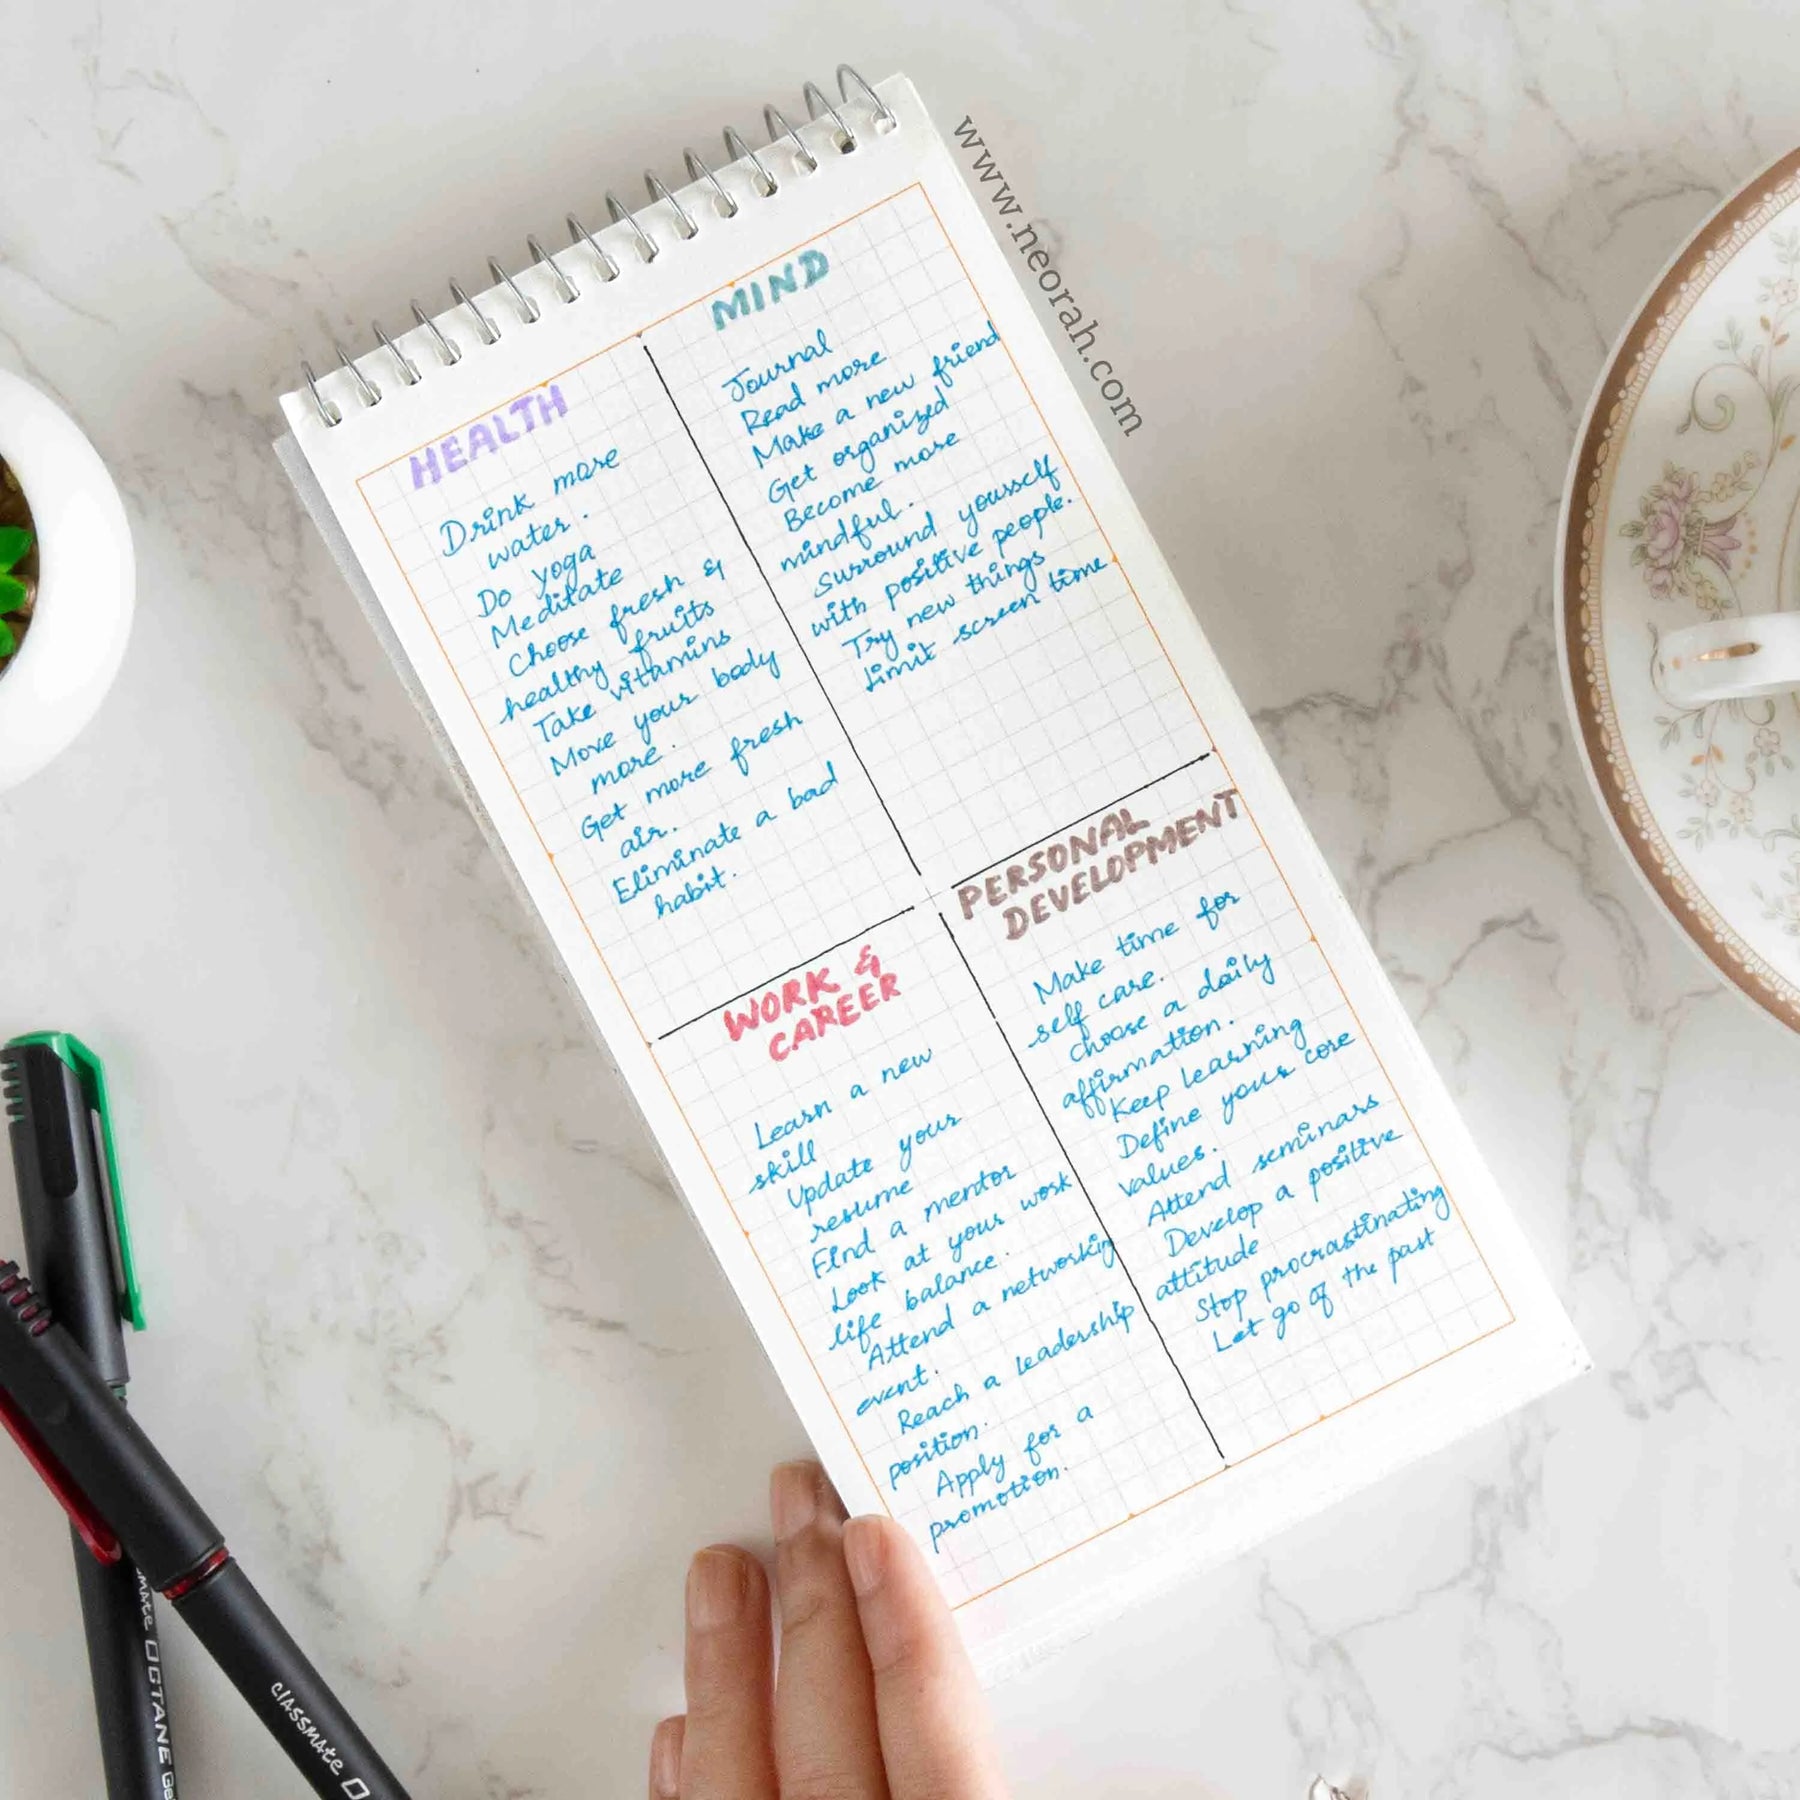 HEALTH
Drink more
water.
Do yoga
Meditate
Choose fresh &
healthy fruits
Take vitamins
Move your body
more.
Get more fresh
air.
Eliminate a bad
habit.
MIND
Journal
Read more
Make a new friend
Get organized
Become more
mindful.
Surround yourself
with positive people.
Try new things
Limit screen time
WORK &
CAREER
Learn a new
skill
Update your
resume
Find a mentor
Look at your work
life balance.
Attend a networking
event.
Reach a leadership
position.
Apply for a
promotion.
PERSONAL
DEVELOPMENT
Make time for
self care.
Choose a daily
affirmation.
Keep learning
Define your core
values.
Attend seminars
Develop a positive
attitude
Stop procrastinating
Let go of the past
www.neorah.com
classmate
OCTANE